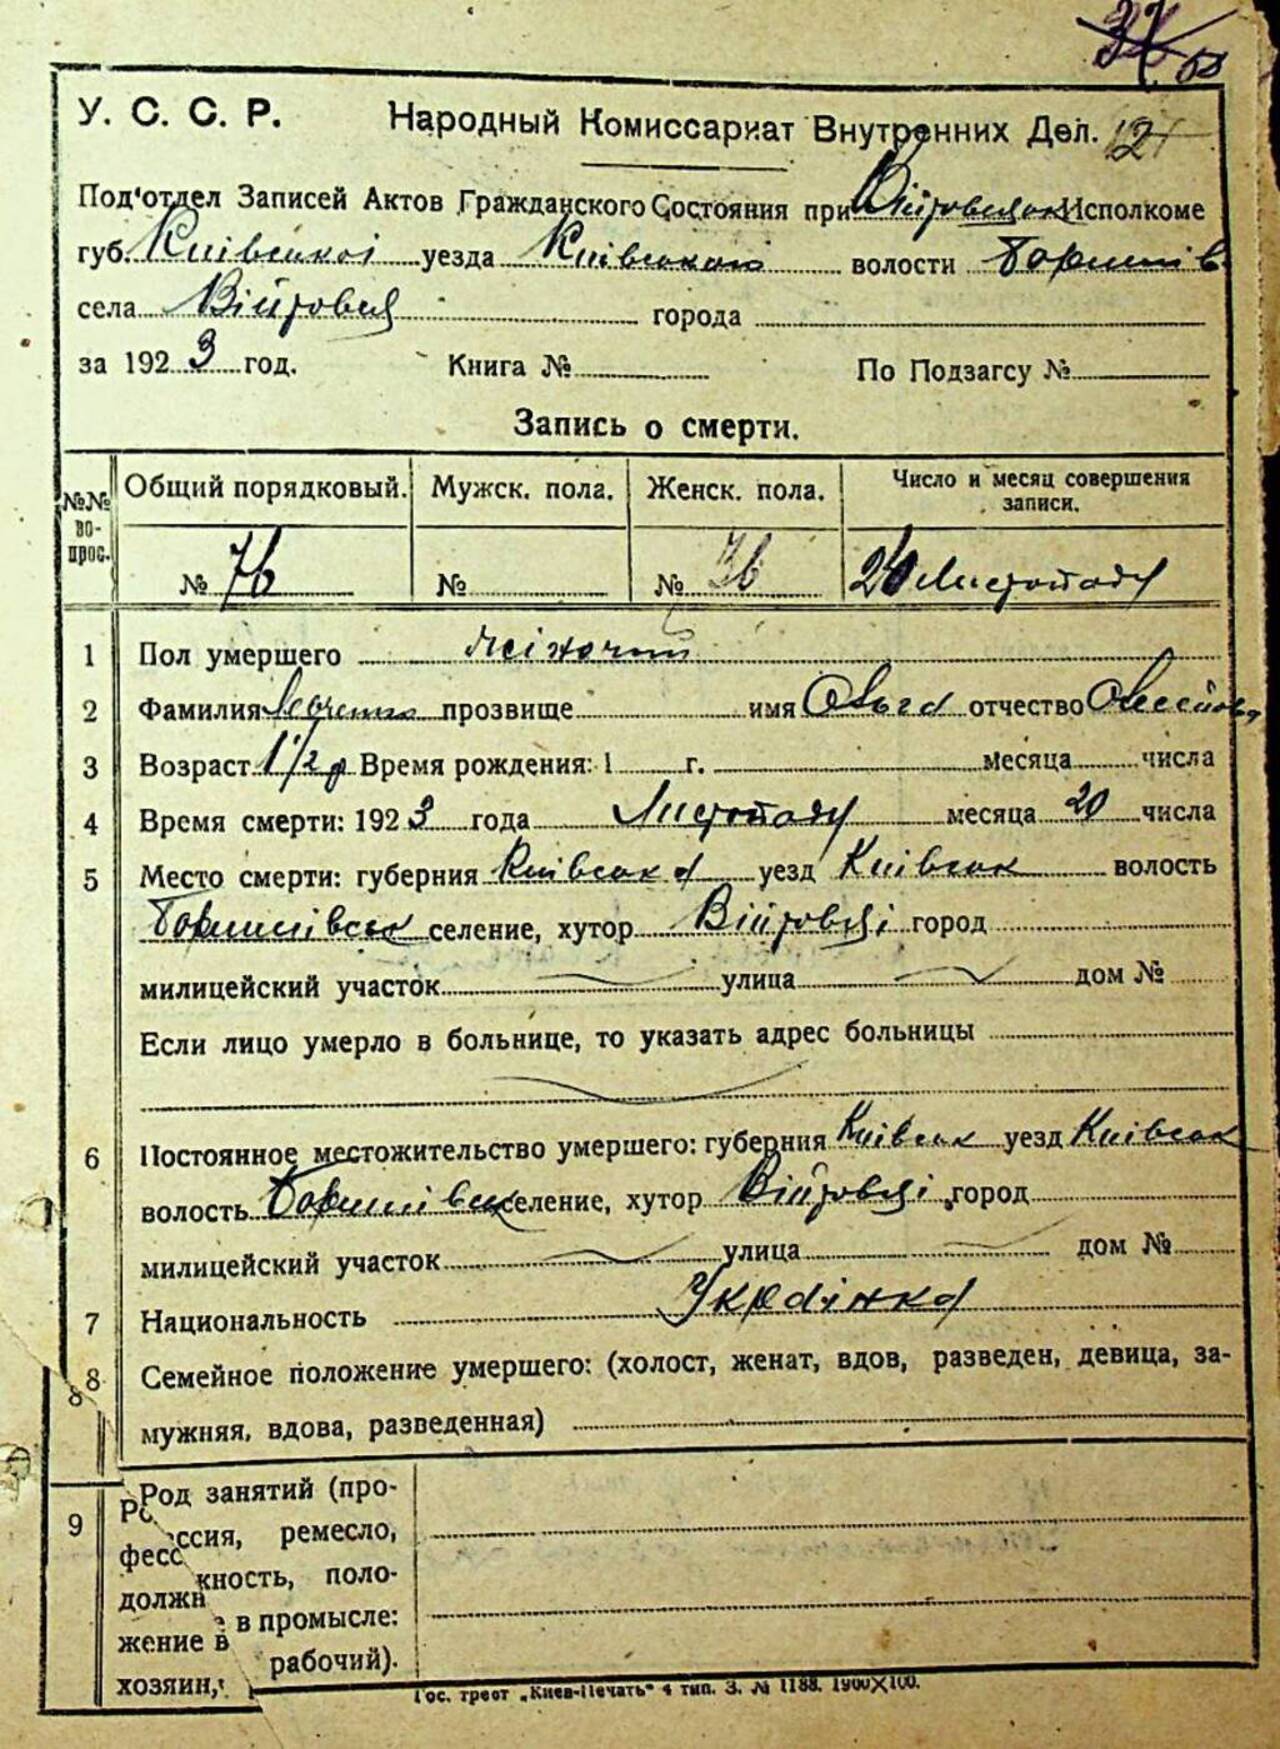 У. С. С. Р. Народный Комиссариат Внутренних Дел.
Под'отдел Записей Актов Гражданского Состояния при Исполкоме
губ. Київської уезда Київського волости
села Війтовці города
за 1923 год. Книга № По Подзагсу №
Запись о смерти.
№№ вопрос. Общий порядковый. Мужск. пола. Женск. пола. Число и месяц совершения записи.
№ 76 № № 36 20 Листопаду
1 Пол умершего жіночий
2 Фамилия прозвище имя Ольга отчество
3 Возраст 1 1/2 р Время рождения: 1 г. месяца числа
4 Время смерти: 1923 года Листопаду месяца 20 числа
5 Место смерти: губерния Київська уезд Київськ волость
селение, хутор Війтовці город
милицейский участок улица дом №
Если лицо умерло в больнице, то указать адрес больницы
6 Постоянное местожительство умершего: губерния Київськ уезд Київськ
волость селение, хутор Війтовці город
милицейский участок улица дом №
7 Национальность Українка
8 Семейное положение умершего: (холост, женат, вдов, разведен, девица, за-
8
мужняя, вдова, разведенная)
Род занятий (про-
9 фессия, ремесло,
должность, поло-
жение в промысле:
хозяин, рабочий).
Гос. трест „Киев-Печать" 4 тип. З. № 1188. 1900×100.